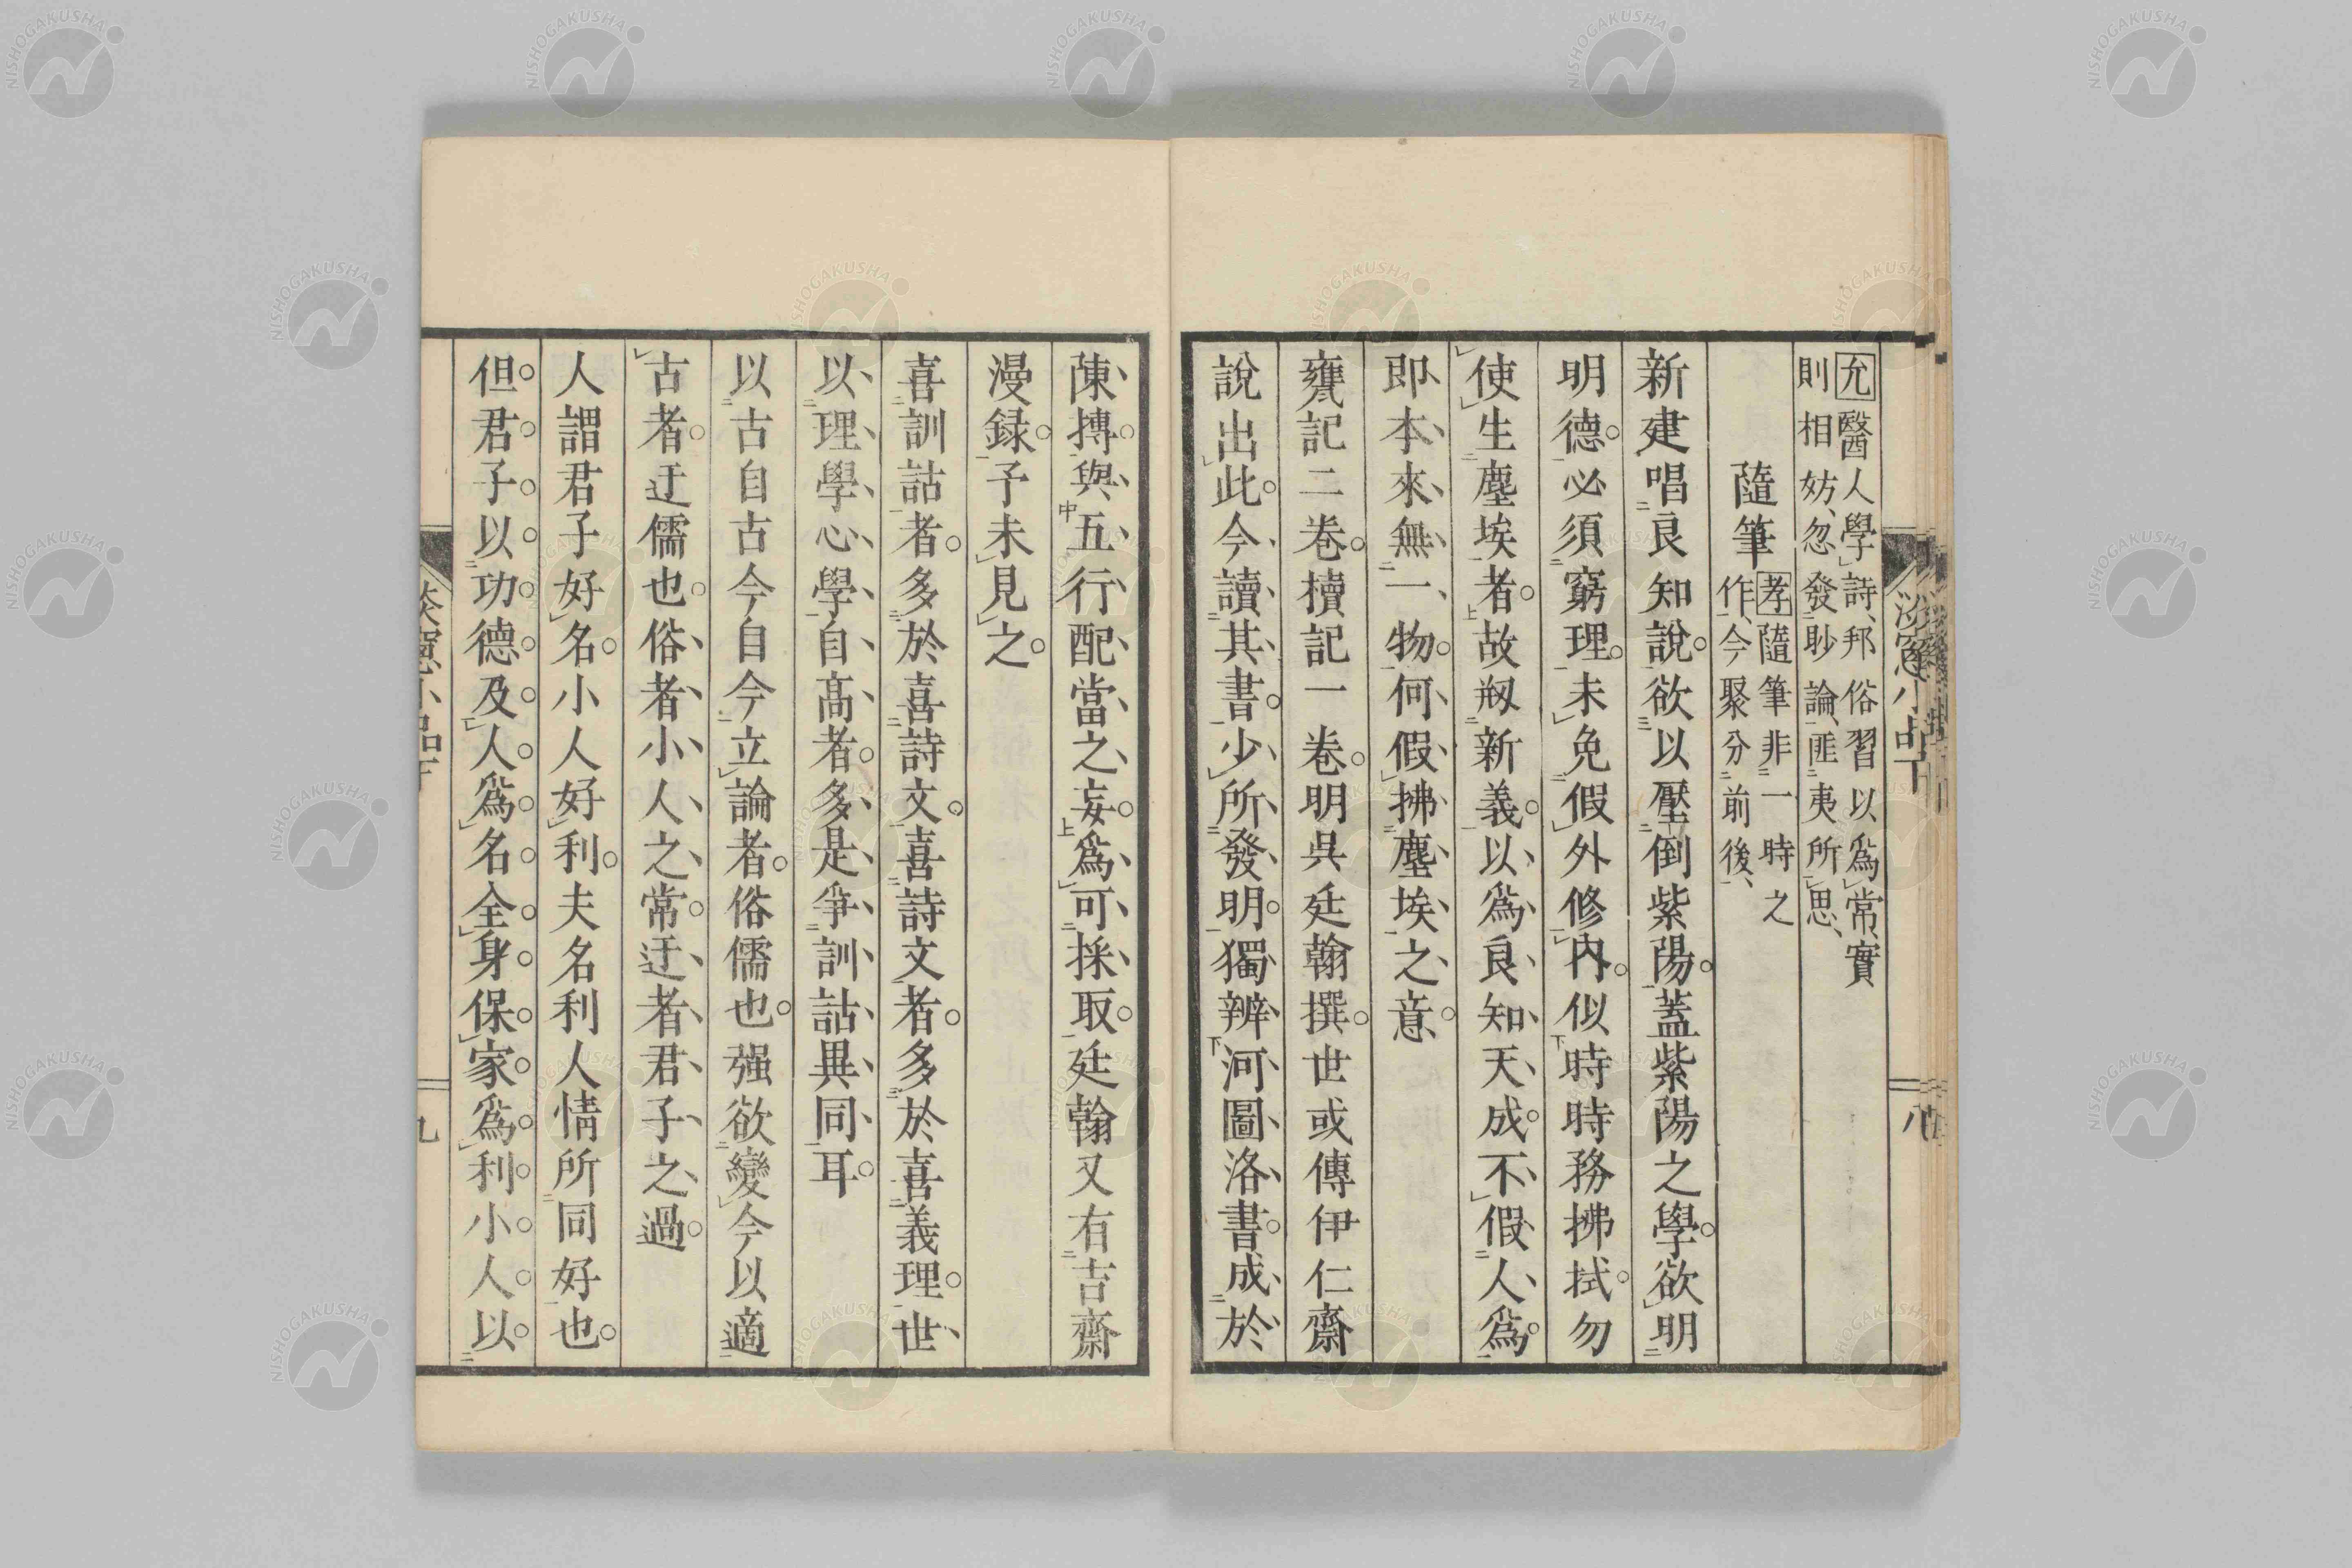 允醫人學詩邦俗習以爲常實
則相妨忽發眇論匪夷所思
隨筆
孝隨筆非一時之
作今聚分前後
新建唱良知說欲以壓倒紫陽蓋紫陽之學欲明
明德必須窮理未免假外修內似時時務拂拭勿
使生塵埃者故剏新義以爲良知天成不假人爲
即本來無一物何假拂塵埃之意
甕記二卷櫝記一卷明吳廷翰撰世或傳伊仁齋
說出此今讀其書少所發明獨辨河圖洛書成於
陳摶與五行配當之妄爲可採取廷翰又有吉齋
漫録予未見之
喜訓詁者多於喜詩文喜詩文者多於喜義理世
以理學心學自高者多是爭訓詁異同耳
以古自古今自今立論者俗儒也强欲變今以適
古者迂儒也俗者小人之常迂者君子之過
人謂君子好名小人好利夫名利人情所同好也
但君子以功德及人爲名全身保家爲利小人以
談窻小品下
八
九
NISHOGAKUSHA